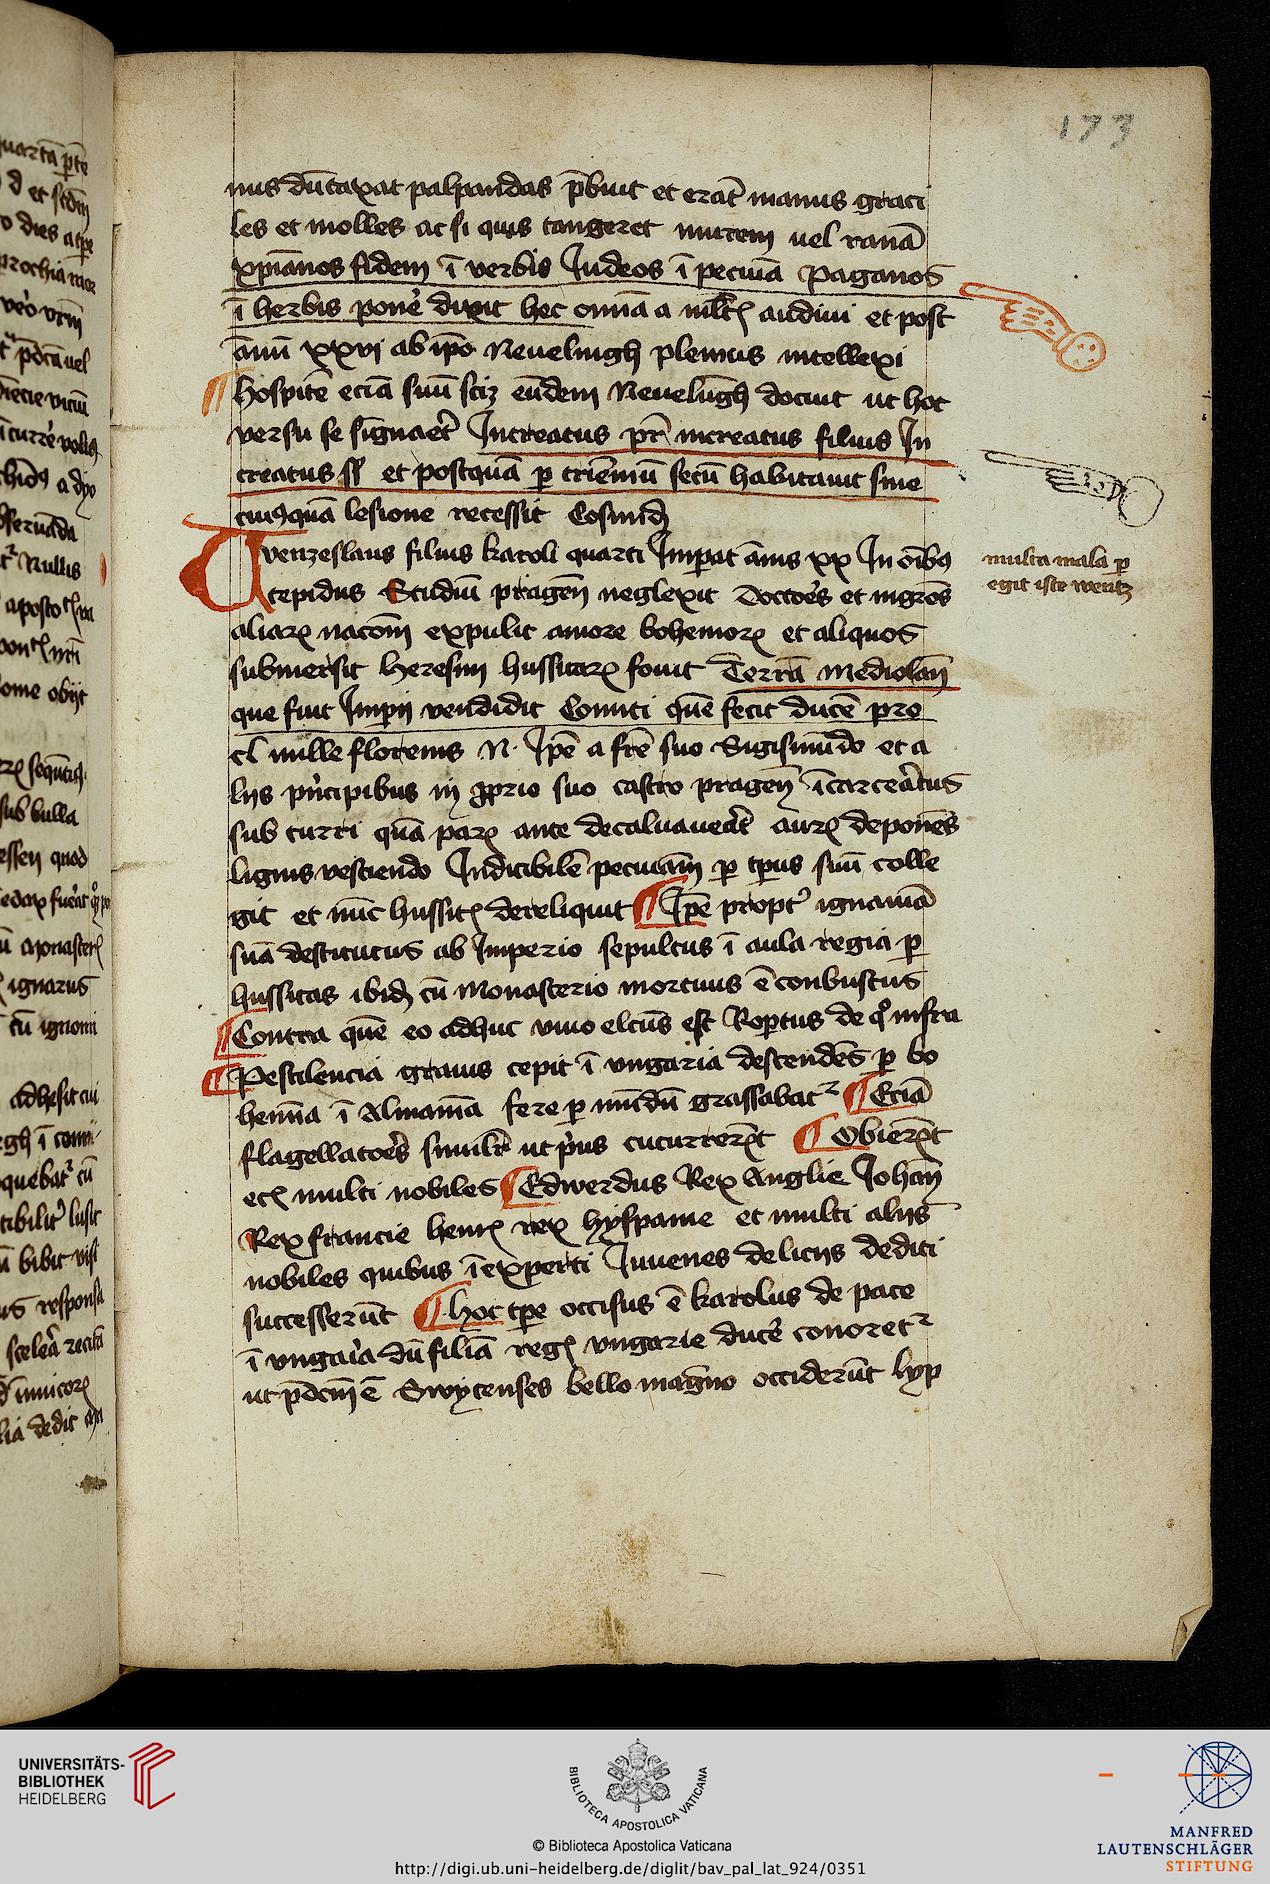 173
nus dūtaxat palpandas p̄buit et erāt manus graci
les et molles ac si quis tangeret murem uel ranā
xp̄ianos fidem ī verbis Iudeos ī pecuīa Paganos
ī herbis ponē dixit hec omīa a ml̄tꝭ audiui et post
annū xxvj ab ip̄o Neuelingh plenius intellexi
hospitē eciā suū sciꝫ eūdem Neuelūgh docuit ut hoc
versu se signaēt Increatus pr̄ increatus filius In
creatus sp̄s et postquā ꝑ trienniū secū habitauit sine
cuiꝰquā lesione recessit
Wenzeslaus filius karoli quarti Imꝑat annis xx In oībꝰ
tepidus Studiū pragen̄ neglexit doctoēs et mgr̄os
aliaꝝ nacōm expulit amore bohemoꝝ et aliquos
submersit heresim hussitaꝝ fouit Terrā mediolan̄
que fuit Impij vendidit Comiti quē fecit ducē pro
cl mille florenis N. Ip̄e a frē suo Sigismūdo et a
lijs pͥncipibus in ꝓprio suo castro pragen̄ īcarceātus
sub turri quā paꝝ ante decaluaueāt auꝝ deponēs
lignis vestiendo Indicibilē pecuīam ꝑ tp̄us suū colle
git et nūc hussitꝭ dereliquit Ip̄e propt̄ ignauiā
suā destitutus ab Imperio sepultus ī aula regia ꝑ
hussitas ibid̄ cū Monasterio mortuus ē conbustus
Contra quē eo adhuc viuo elcūs est Roꝑtus de qͦ infra
Pestilencia grauis cepit ī vngaria descendēs ꝑ bo
hemīa ī Almaniā fere ꝑ mūdū grassabatᷣ Eciā
flagellatoēs similr̄ ut pͥus cucurrer̄t Obier̄t
ecꝭ multi nobiles Edwerdus Rex Anglie Johan̄
Rex francie henrꝭ rex hyspanie et multi alijs
nobiles quibus īexperti Iuuenes delicijs dediti
successerūt hoc tp̄e occisus ē karolus de pace
ī vngaīa dū filiā regꝭ vngarie ducē conoretᷣ
ut p̄dcm̄ ē Swytenses bello magno occiderūt lyp
multa mala ꝑ
egit iste wentz
UNIVERSITÄTS-
BIBLIOTHEK
HEIDELBERG
BIBLIOTECA APOSTOLICA VATICANA
© Biblioteca Apostolica Vaticana
http://digi.ub.uni-heidelberg.de/diglit/bav_pal_lat_924/0351
MANFRED
LAUTENSCHLÄGER
STIFTUNG